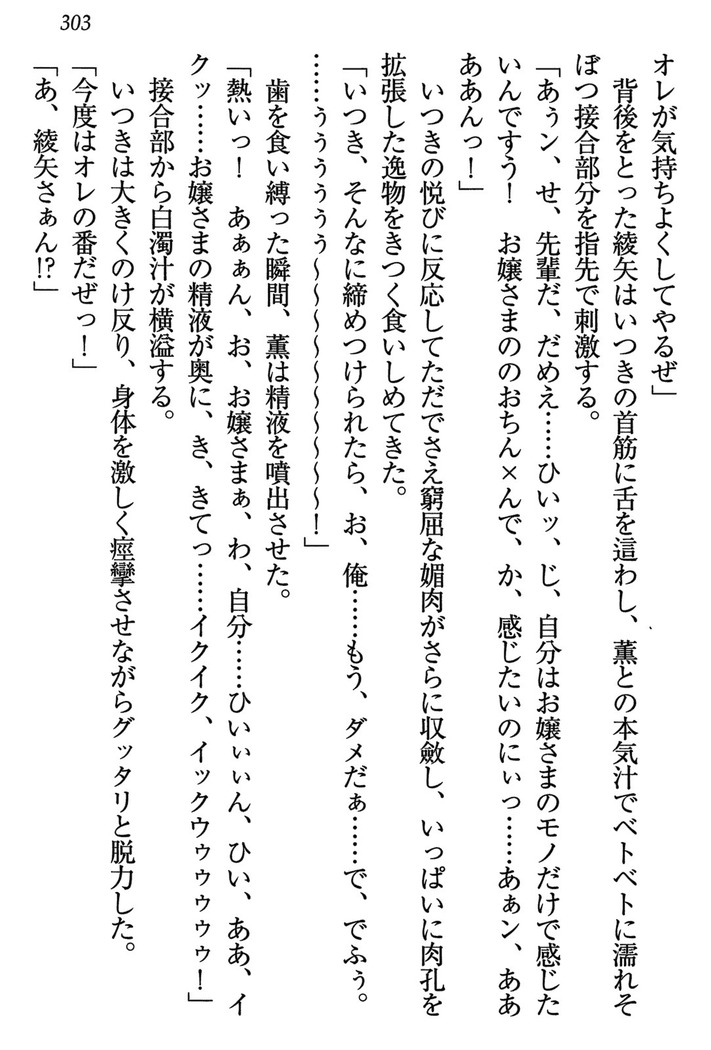 303
オレが気持ちよくしてやるぜ」
　背後をとった綾矢はいつきの首筋に舌を這わし、薫との本気汁でベトベトに濡れそ
ぼつ接合部分を指先で刺激する。
「あぅン、せ、先輩だ、だめえ……ひいッ、じ、自分はお嬢さまのモノだけで感じた
いんですう！　お嬢さまののおちん×んで、か、感じたいのにぃっ……あぁン、ああ
ああんっ！」
　いつきの悦びに反応してただでさえ窮屈な媚肉がさらに収斂し、いっぱいに肉孔を
拡張した逸物をきつく食いしめてきた。
「いつき、そんなに締めつけられたら、お、俺……もう、ダメだぁ……で、でふぅ。
……うぅぅぅぅぅ～～～～～～～～～～！」
　歯を食い縛った瞬間、薫は精液を噴出させた。
「熱いっ！　あぁぁん、お、お嬢さまぁ、わ、自分……ひいぃぃん、ひい、ああ、イ
クッ……お嬢さまの精液が奥に、き、きてっ……イクイク、イックウゥゥゥゥゥ！」
　接合部から白濁汁が横溢する。
　いつきは大きくのけ反り、身体を激しく痙攣させながらグッタリと脱力した。
「今度はオレの番だぜっ！」
「あ、綾矢さぁん!?」